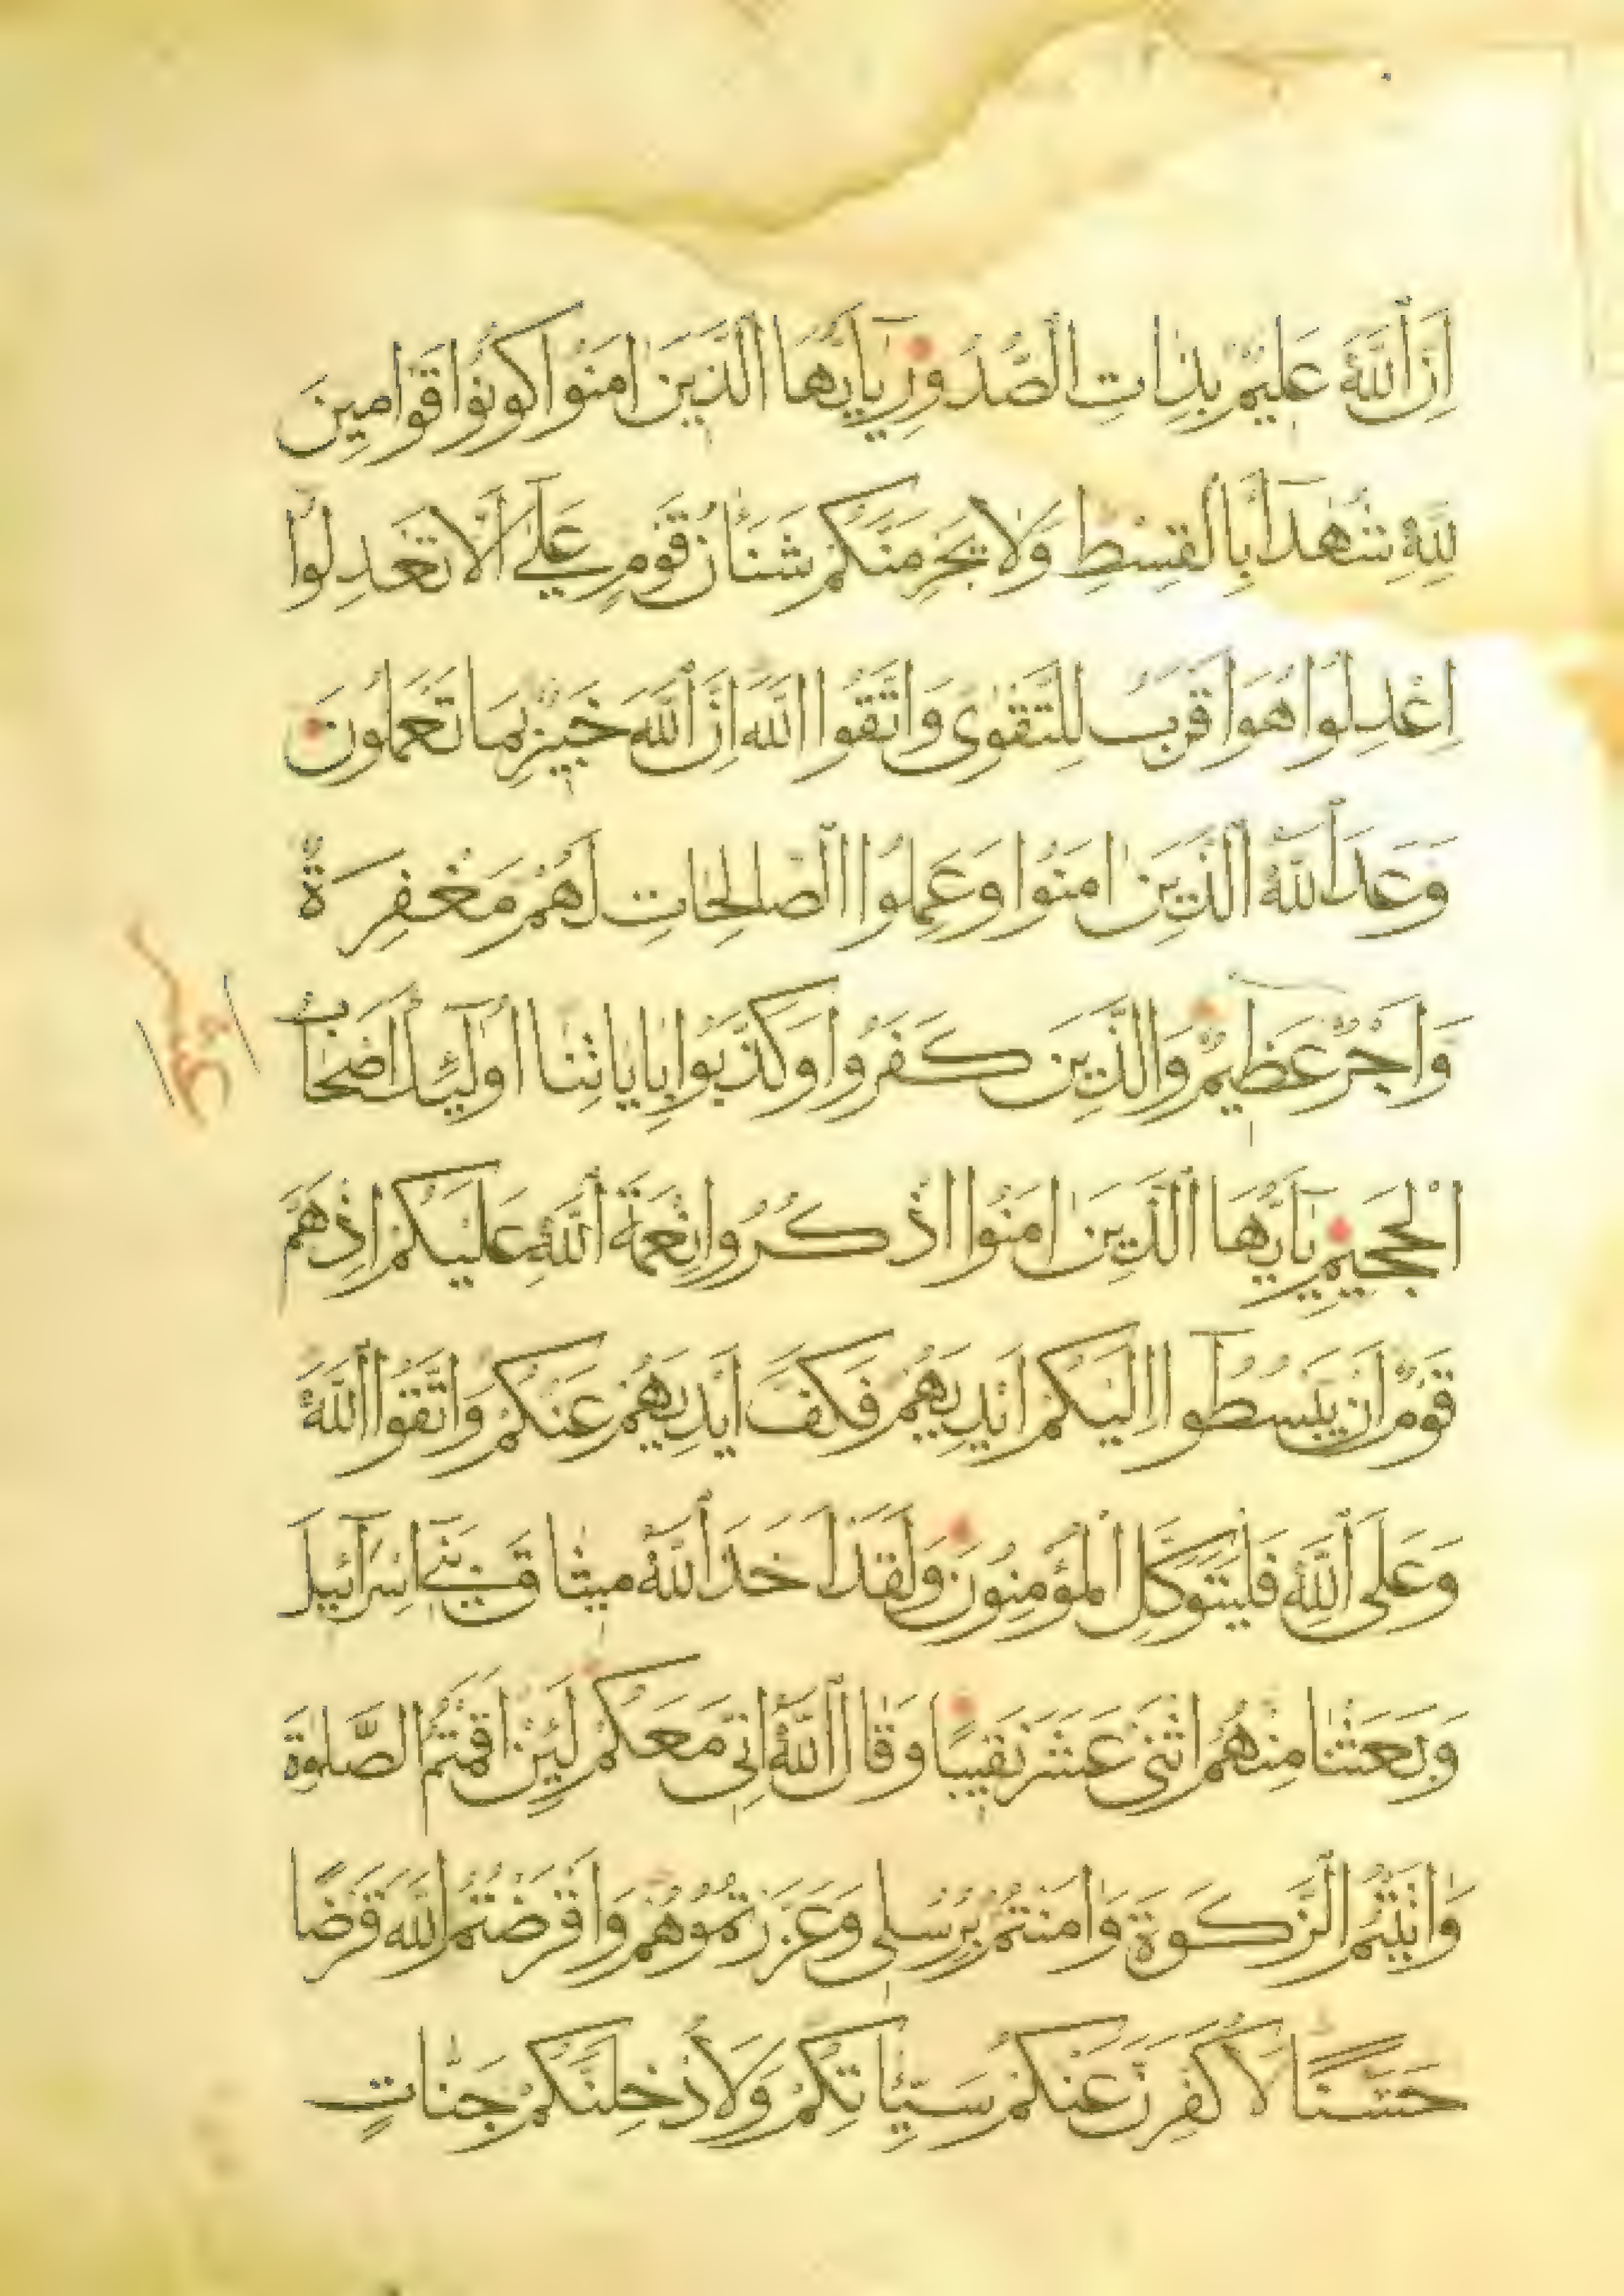 اِنَّ اللّٰهَ عَلِيمٌ بِذَاتِ الصُّدُورِ يَآ اَيُّهَا الَّذِينَ اٰمَنُوا كُونُوا قَوَّامِينَ
لِلّٰهِ شُهَدَآءَ بِالْقِسْطِ وَلَا يَجْرِمَنَّكُمْ شَنَاٰنُ قَوْمٍ عَلٰٓى اَلَّا تَعْدِلُوا
اِعْدِلُوا هُوَ اَقْرَبُ لِلتَّقْوٰى وَاتَّقُوا اللّٰهَ اِنَّ اللّٰهَ خَبِيرٌ بِمَا تَعْمَلُونَ
وَعَدَ اللّٰهُ الَّذِينَ اٰمَنُوا وَعَمِلُوا الصَّالِحَاتِ لَهُمْ مَغْفِرَةٌ
وَاَجْرٌ عَظِيمٌ وَالَّذِينَ كَفَرُوا وَكَذَّبُوا بِاٰيَاتِنَا اُولٰٓئِكَ اَصْحَابُ
الْجَحِيمِ يَآ اَيُّهَا الَّذِينَ اٰمَنُوا اذْكُرُوا نِعْمَةَ اللّٰهِ عَلَيْكُمْ اِذْ هَمَّ
قَوْمٌ اَنْ يَبْسُطُوٓا اِلَيْكُمْ اَيْدِيَهُمْ فَكَفَّ اَيْدِيَهُمْ عَنْكُمْ وَاتَّقُوا اللّٰهَ
وَعَلَى اللّٰهِ فَلْيَتَوَكَّلِ الْمُؤْمِنُونَ وَلَقَدْ اَخَذَ اللّٰهُ مِيثَاقَ بَنِىٓ اِسْرَآئِيلَ
وَبَعَثْنَا مِنْهُمُ اثْنَىْ عَشَرَ نَقِيبًا وَقَالَ اللّٰهُ اِنِّى مَعَكُمْ لَئِنْ اَقَمْتُمُ الصَّلٰوةَ
وَاٰتَيْتُمُ الزَّكٰوةَ وَاٰمَنْتُمْ بِرُسُلِى وَعَزَّرْتُمُوهُمْ وَاَقْرَضْتُمُ اللّٰهَ قَرْضًا
حَسَنًا لَاُكَفِّرَنَّ عَنْكُمْ سَيِّـَٔاتِكُمْ وَلَاُدْخِلَنَّكُمْ جَنَّاتٍ